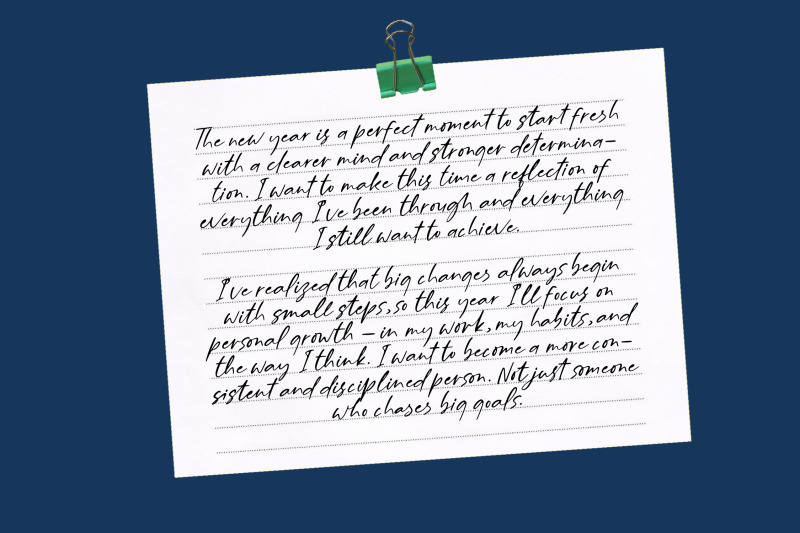 The new year is a perfect moment to start fresh
with a clearer mind and stronger determina–
tion. I want to make this time a reflection of
everything I've been through and everything
I still want to achieve.
I've realized that big changes always begin
with small steps, so this year I'll focus on
personal growth – in my work, my habits, and
the way I think. I want to become a more con–
sistent and disciplined person. Not just someone
who chases big goals.